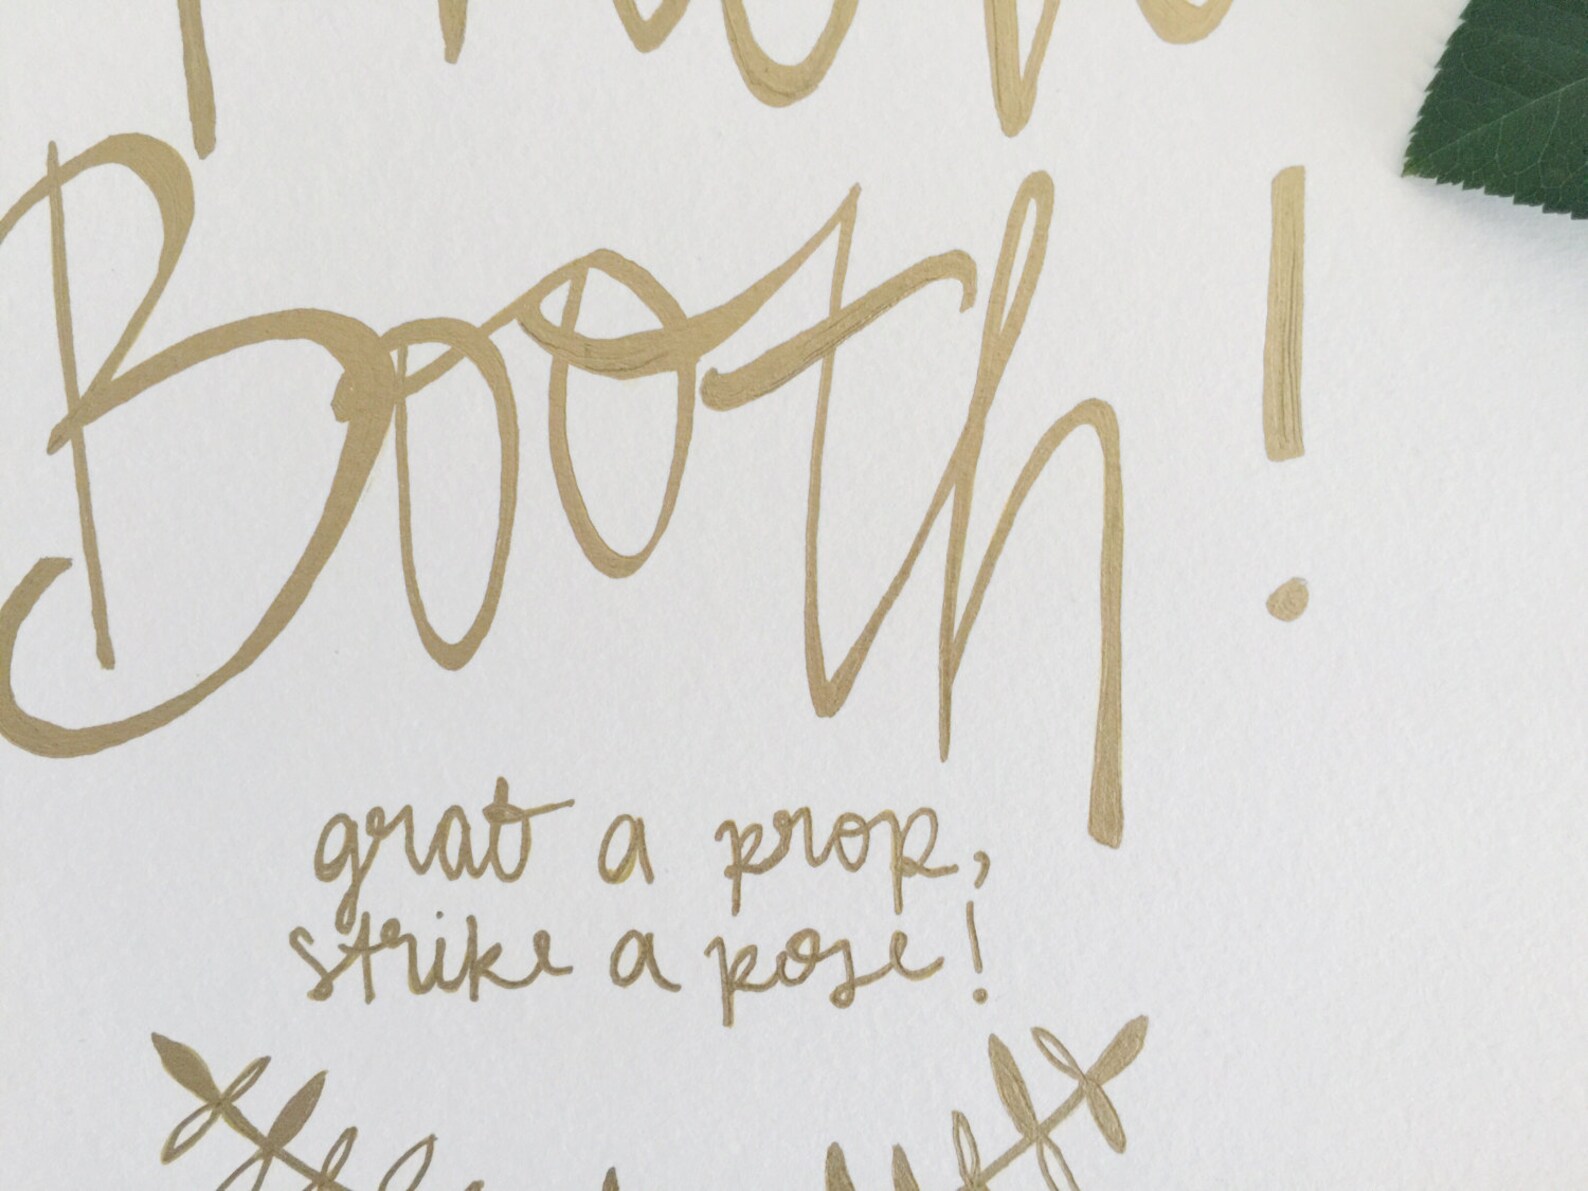 Booth!
grab a prop,
strike a pose!